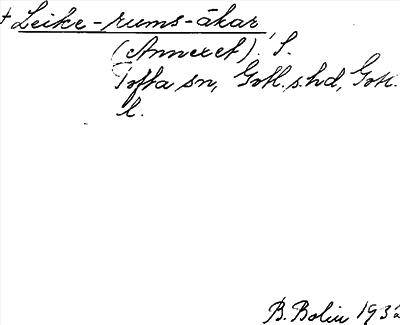 † Leike-rums-åkar
(Annexet). S.
Tofta sn, Gotl. s. hd, Gotl.
l.
B. Bolin 1932